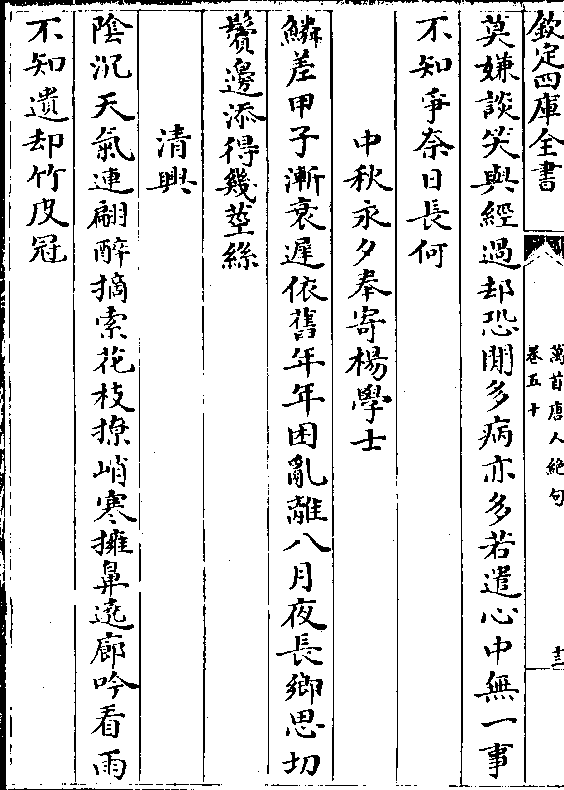 欽定四庫全書
萬首唐人絶句
卷五十
十三
莫嫌談笑與經過却恐閒多病亦多若遣心中無一事
不知爭奈日長何
中秋永夕奉寄楊學士
鱗差甲子漸衰遲依舊年年困亂離八月夜長鄉思切
鬢邊添得幾莖絲
清興
陰沉天氣連翩醉摘索花枝撩峭寒擁鼻遶廊吟看雨
不知遺却竹皮冠